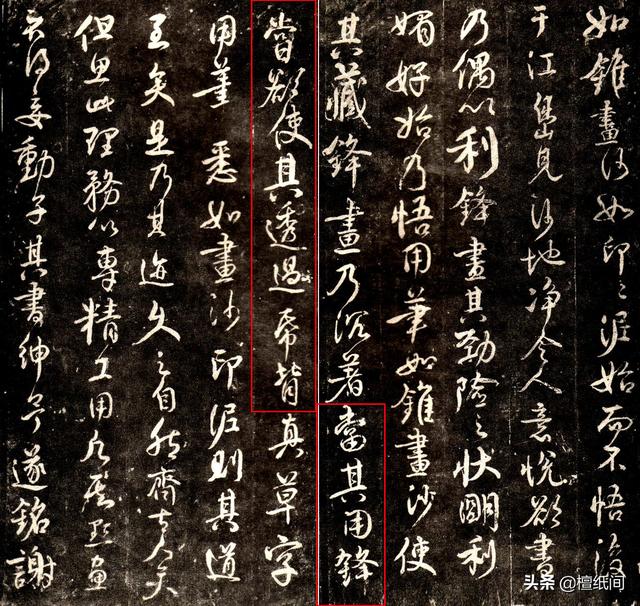 如錐畫沙如印〻泥始而不悟後
于江島見沙地净令人意悦欲書
乃偶以利鋒畫其勁險之狀明利
媚好始乃悟用筆如錐畫沙使
其藏鋒畫乃沉著當其用鋒
嘗欲使其透過帋背真草字
用筆悉如畫沙印泥則其道
至矣是乃其迹久之自然齊古人矣
但思此理務以專精工用點畫
不得妄動子其書紳予遂銘謝
头条 @檀纸间